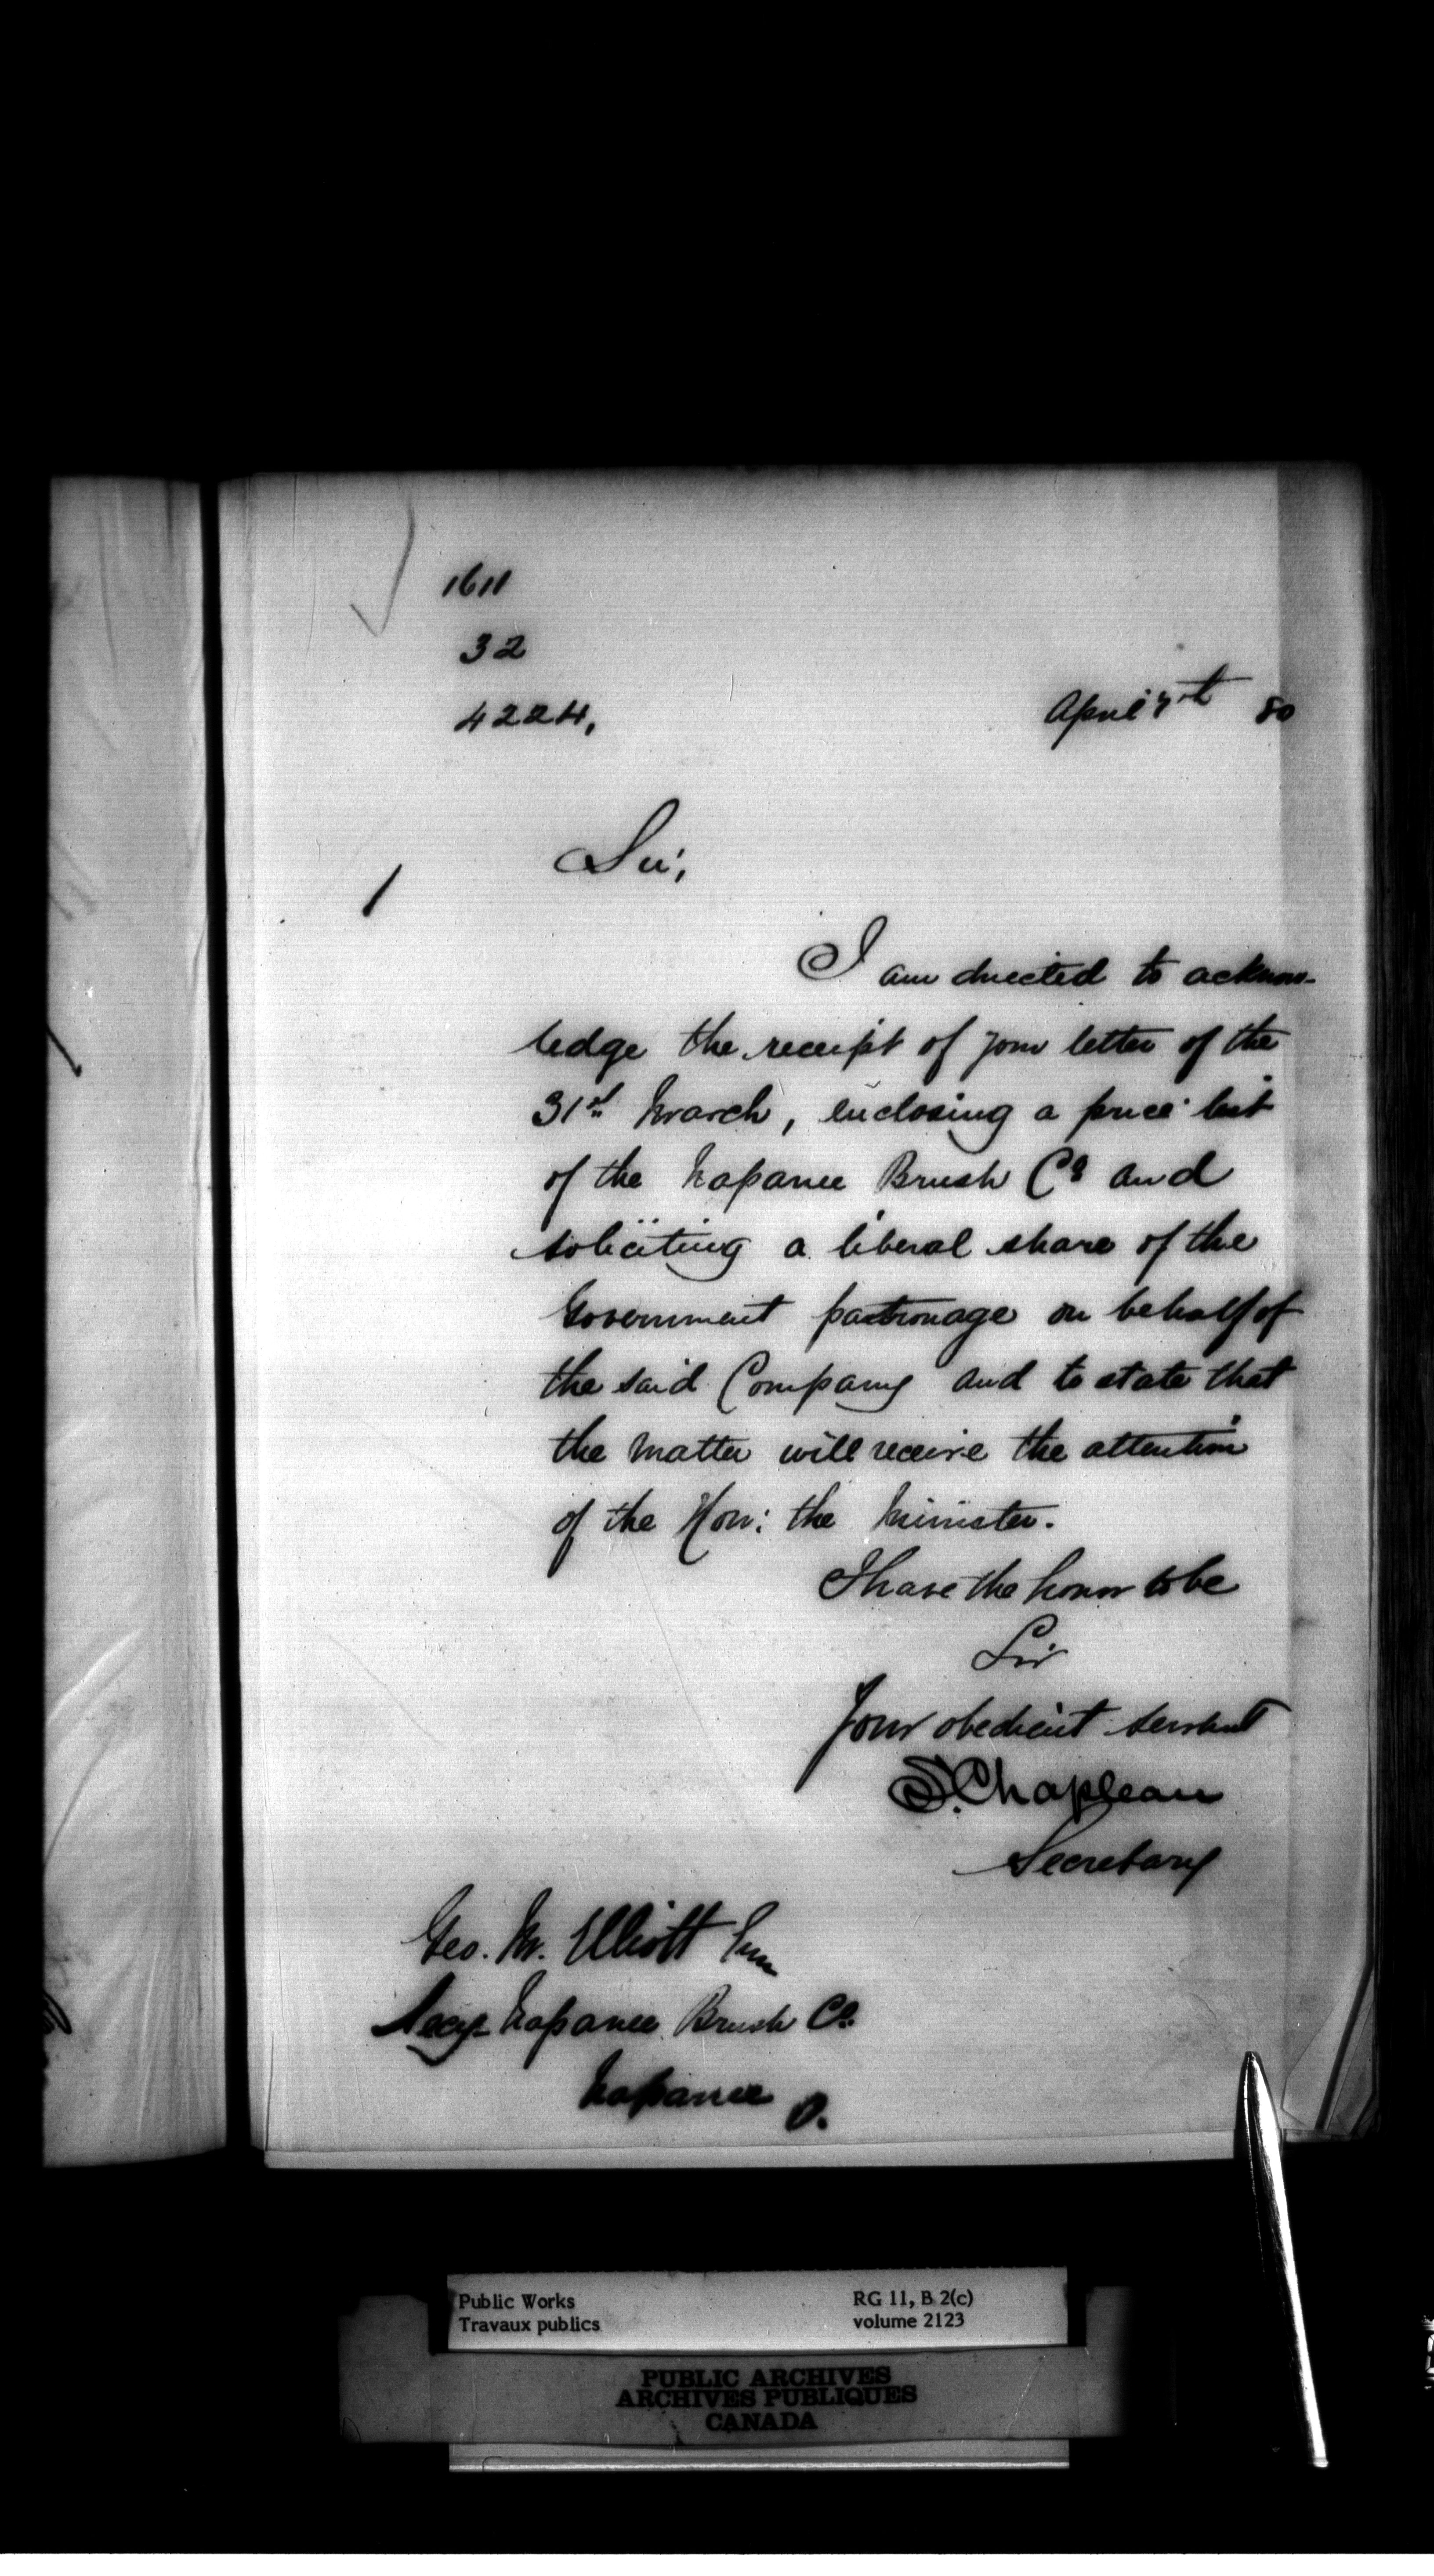 1611
32
4224,
April 7th 80
Sir,
I am directed to acknow-
ledge the receipt of your letter of the
31st March, enclosing a price list
of the Napanee Brush Co and
soliciting a liberal share of the
Government patronage on behalf of
the said Company and to state that
the matter will receive the attention
of the Hon: the Minister.
I have the honor to be
Sir
Your obedient servant
S. Chapleau
Secretary
Geo. M. Elliott
Secy Napanee Brush Co.
Napanee O.
Public Works
Travaux publics
RG 11, B 2(c)
volume 2123
PUBLIC ARCHIVES
ARCHIVES PUBLIQUES
CANADA